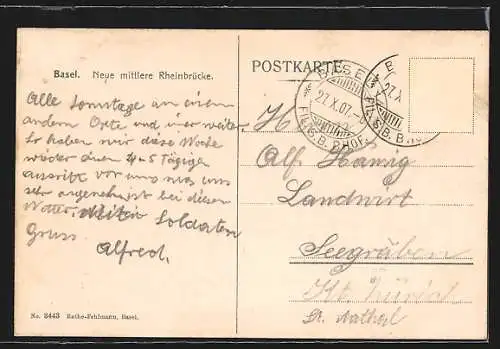 Basel. Neue mittlere Rheinbrücke.
Alle Sonntage an einem
andern Orte und immer weiter.
So haben wir diese Woche
wieder einen 4-5 Tägigen
Ausritt vor uns was uns
sehr angenehm ist bei diesem
Wetter. Soldaten
Gruss.
Alfred.
No. 3443 Rathe-Fehlmann, Basel.
POSTKARTE
BASEL
27.X.07.
FIL. S.B.BHOF
27.X
FIL. S.B.B.
H
Alf. Hanig
Landwirt
Seegräben
Kt. Zürich